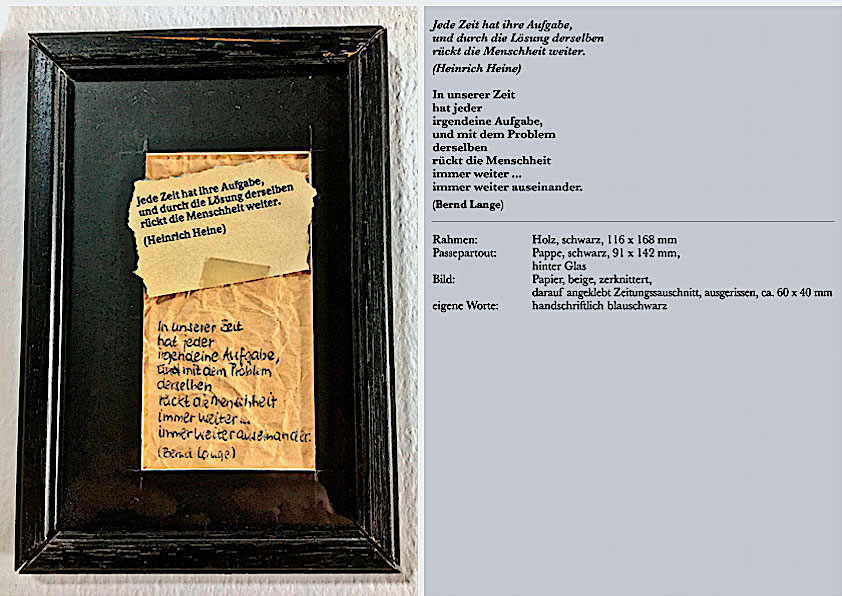 Jede Zeit hat ihre Aufgabe,
und durch die Lösung derselben
rückt die Menschheit weiter.
(Heinrich Heine)
In unserer Zeit
hat jeder
irgendeine Aufgabe,
und mit dem Problem
derselben
rückt die Menschheit
immer weiter...
immer weiter auseinander.
(Bernd Lange)
Jede Zeit hat ihre Aufgabe,
und durch die Lösung derselben
rückt die Menschheit weiter.
(Heinrich Heine)
In unserer Zeit
hat jeder
irgendeine Aufgabe,
und mit dem Problem
derselben
rückt die Menschheit
immer weiter ...
immer weiter auseinander.
(Bernd Lange)
Rahmen: Holz, schwarz, 116 x 168 mm
Passepartout: Pappe, schwarz, 91 x 142 mm,
hinter Glas
Bild: Papier, beige, zerknittert,
darauf angeklebt Zeitungssauschnitt, ausgerissen, ca. 60 x 40 mm
eigene Worte: handschriftlich blauschwarz